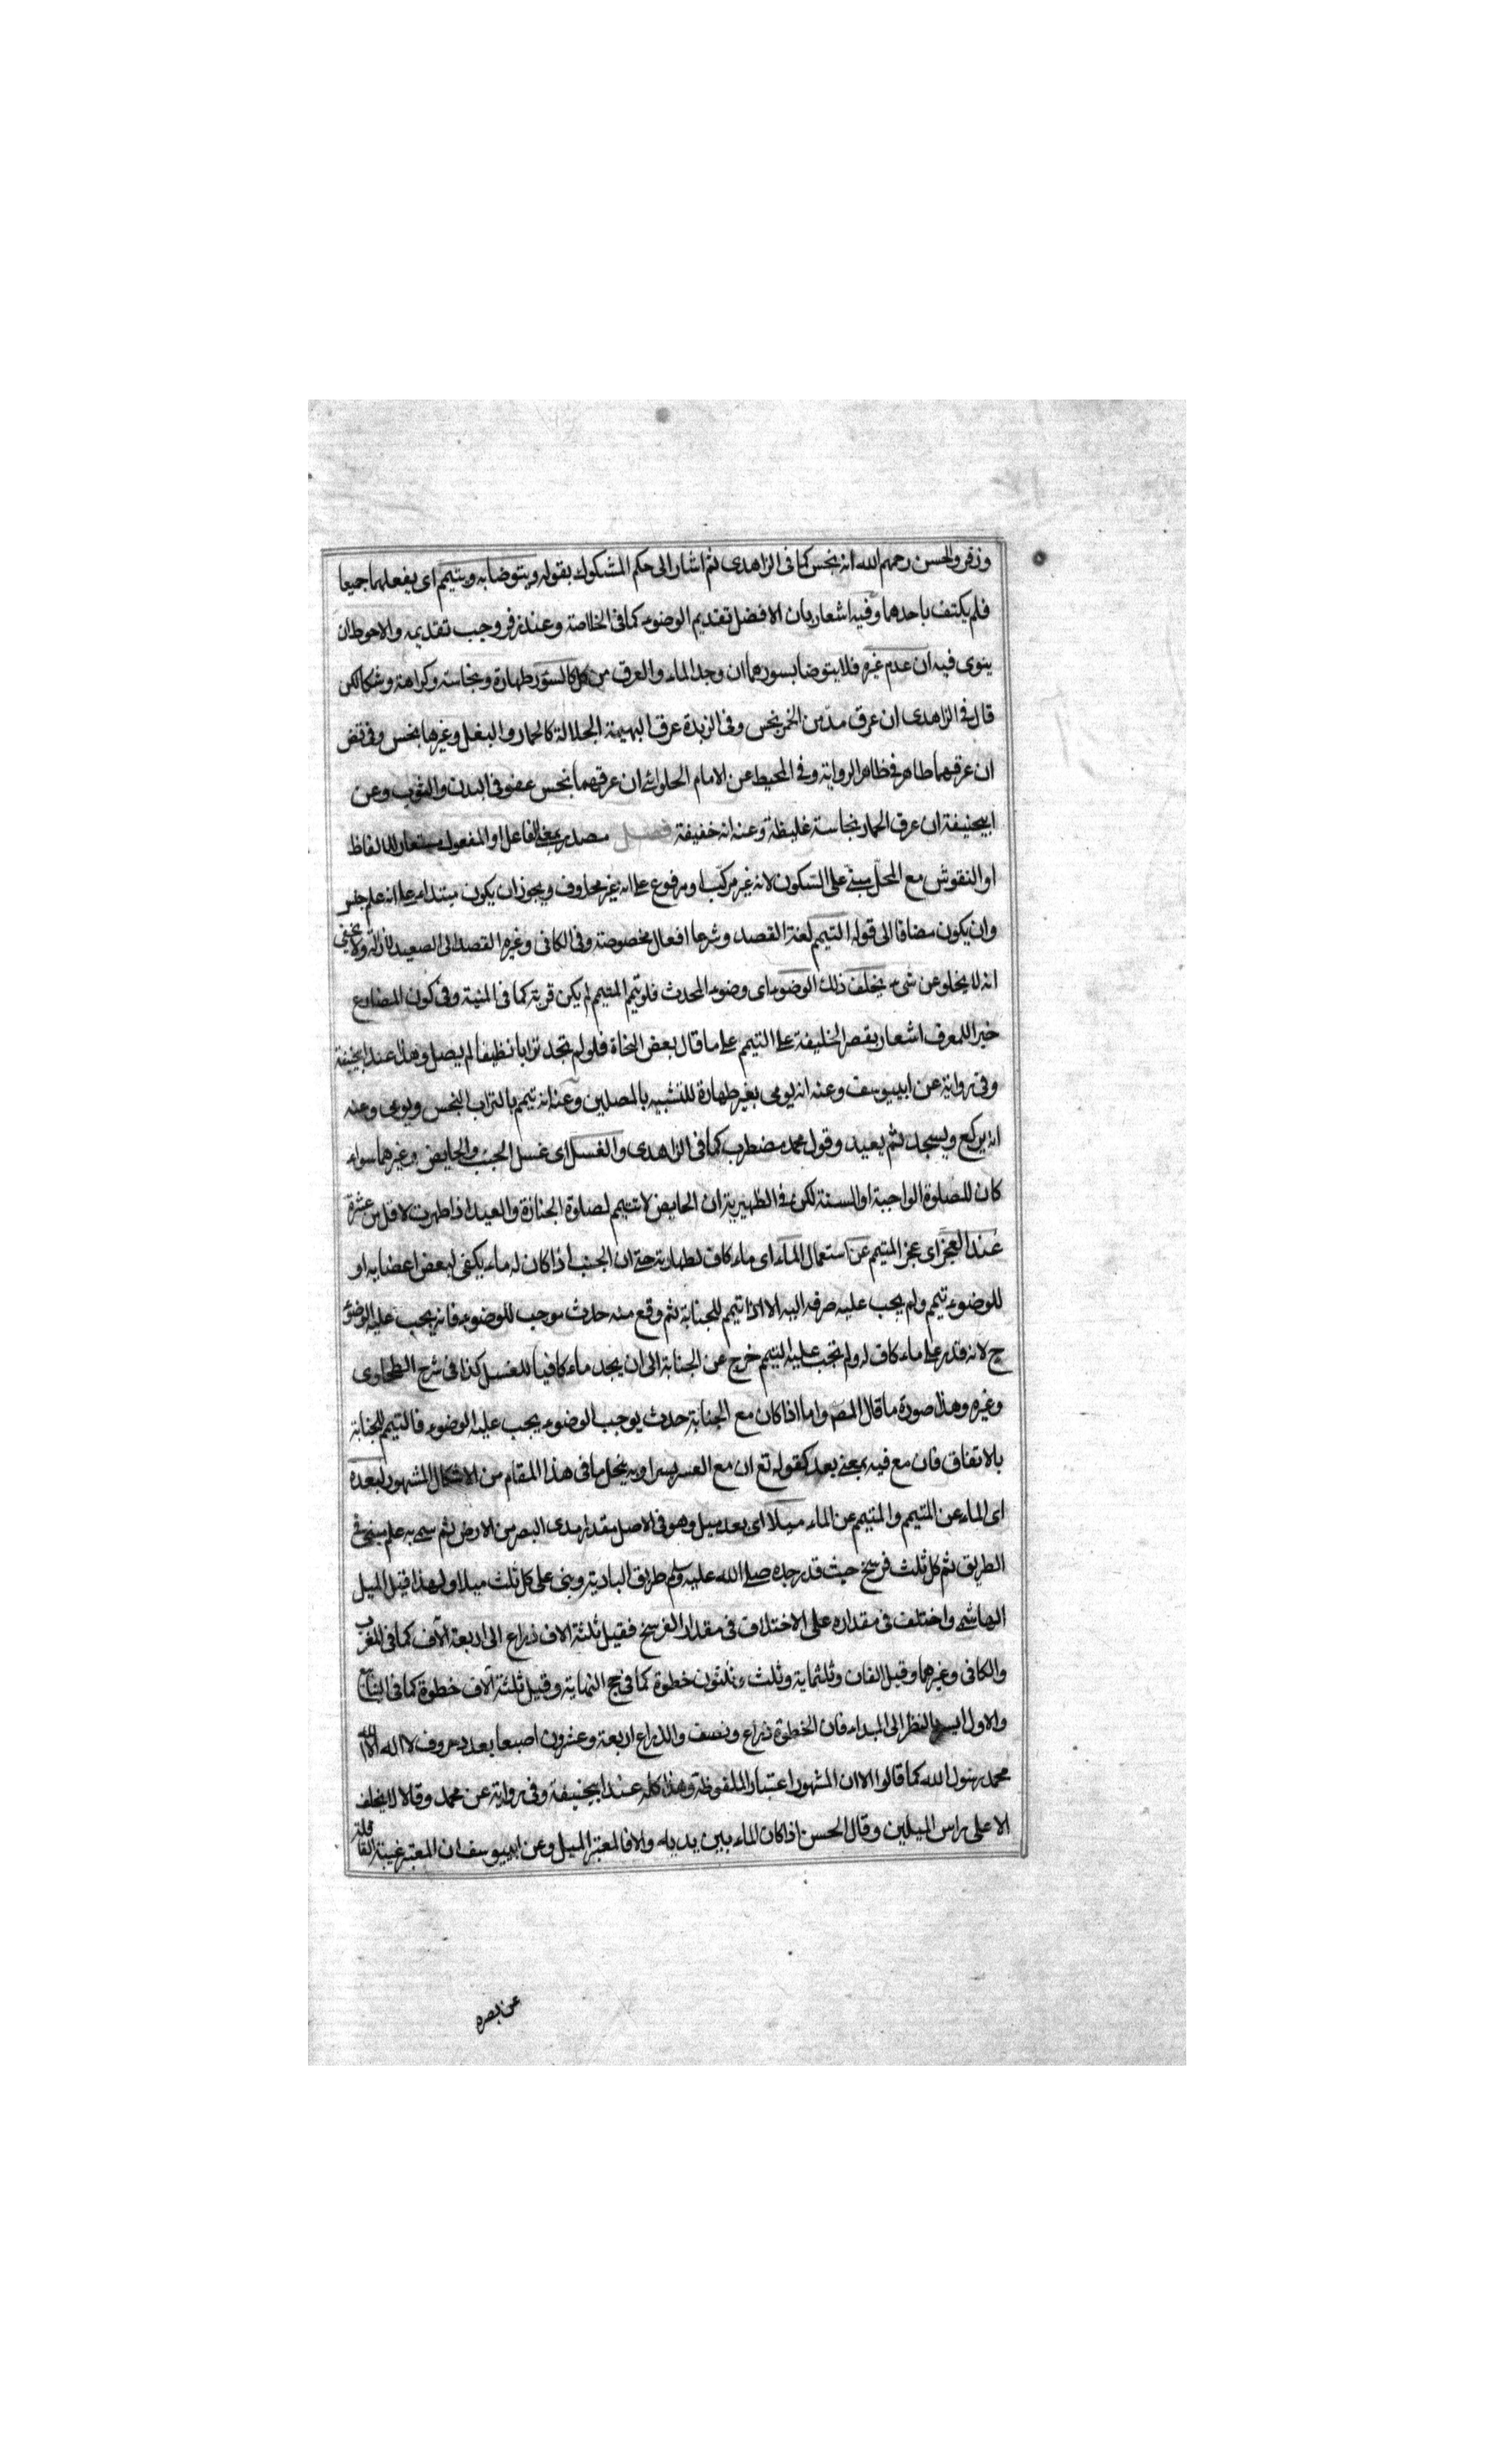 وزفر والحسن رحمهم الله انه نجس كما فى الزاهدى ثم اشار الى حكم المشكوك بقوله ويتوضا به ويتيمم اى يفعلهما جميعا
فلم يكتف باحدهما وفيه اشعار بان الافضل تقديم الوضوء كما فى الخلاصة وعند زفر وجب تقديمه والاحوط ان
ينوى فيه ان عدم غيره فلا يتوضا بسورهما ان وجد الماء والعرق من كل كالسور طهارة ونجاسة وكراهة وشكا لكن
قال فى الزاهدى ان عرق مدمن الخمر نجس وفى الزبدة عرق البهيمة الجلالة كالحمار والبغل وغيرها نجس وفى
ان عرقهما طاهر فى ظاهر الرواية وفى المحيط عن الامام الحلوائى ان عرقهما نجس عفو فى البدن والثوب وعن
ابيحنيفة ان عرق الحمار نجاسة غليظة وعنه انه خفيفة فصل مصدر بمعنى الفاعل او المفعول مستعار للالفاظ
او النقوش مع المحل مبنى على السكون لانه غير مركب او مرفوع على انه غير محذوف ويجوز ان يكون مبتداء على انه علم جنس
وان يكون مضافا الى قوله التيمم لغة القصد وشرعا افعال مخصوصة وفى الكافى وغيره القصد الى الصعيد ولا يخفى
انه لا يخلو عن شىء يخلف ذلك الوضوء اى وضوء المحدث فلو تيمم المتيمم لم يكن قربة كما فى المنية وفى كون المضارع
خبرا للمعرف اشعار بقصر الخليفة على التيمم على ما قال بعض النحاة فلو لم تجد ترابا نظيفا لم يصل وهذا عند ابيحنيفة
وفى رواية عن ابييوسف وعنه انه يومى بغير طهارة للتشبيه بالمصلين وعنه انه تيمم بالتراب النجس ويومى وعنه
انه يركع ويسجد ثم يعيد وقول محمد مضطرب كما فى الزاهدى والغسل اى غسل الجنب والحايض وغيرهما سواء
كان للصلوة الواجبة او السنة لكن فى الظهيرية ان الحايض لا تتيمم لصلوة الجنازة والعيد اذا طهرت لاقل من عشرة
عند العجز اى عجز المتيمم عن استعمال الماء اى ماء كاف لطهارته حتى ان الجنب اذا كان له ماء يكفى لبعض اعضايه او
للوضوء تيمم ولم يجب عليه صرفه اليه الا اذا تيمم للجنابة ثم وقع منه حدث موجب للوضوء فانه يجب عليه الوضوء
ح لانه قدر على ماء كاف له ولم تجب عليه التيمم خرج عن الجنابة الى ان يجد ماء كافيا للغسل كذا فى شرح الطحاوى
وغيره وهذا صورة ما قال المصر واما اذا كان مع الجنابة حدث يوجب الوضوء يجب عليه الوضوء فالتيمم للجنابة
بالاتفاق فان مع فيه بمعنى بعد كقوله تع ان مع العسر يسرا وبه ينحل ما فى هذا المقام من الاشكال المشهور لبعده
اى الماء عن المتيمم والمتيمم عن الماء ميلا اى بعد ميل وهو فى الاصل مقدار مدى البصر من الارض ثم سمى به علم مبنى فى
الطريق ثم كل ثلث فرسخ حيث قدر جده صلى الله عليه وسلم طريق البادية وبنى على كل ثلث ميلا ولهذا قيل الميل
الهاشمى واختلف فى مقداره على الاختلاف فى مقدار الفرسخ فقيل ثلثة الاف ذراع الى اربعة آلاف كما فى المغرب
والكافى وغيرهما وقيل الفان وثلثماية وثلث وثلثون خطوة كما فى حج النهاية وقيل ثلثة آلاف خطوة كما فى
والاول ايسر بالنظر الى المبداء فان الخطوة ذراع ونصف والذراع اربعة وعشرون اصبعا بعدد حروف لا اله الا الله
محمد رسول الله كما قالوا الا ان المشهور اعتبار الملفوظة وهذا كله عند ابيحنيفة وفى رواية عن محمد وقالا لا يخلف
الا على راس الميلين وقال الحسن اذا كان الماء بين يديه والا فالمعتبر الميل وعن ابييوسف ان المعتبر غيبة القافلة
عن بصره